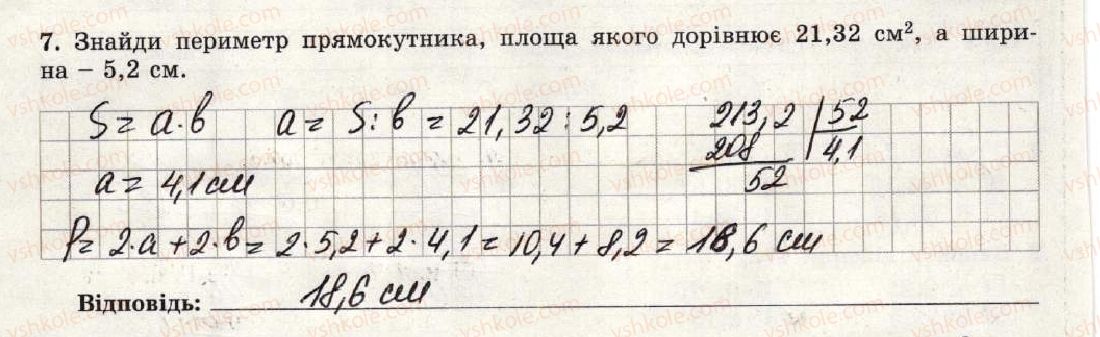 7. Знайди периметр прямокутника, площа якого дорівнює 21,32 см², а шири-
на – 5,2 см.
S = a·b   a = S:b = 21,32:5,2   213,2 | 52
208   4,1
a = 4,1 см   52
P = 2·a + 2·b = 2·5,2 + 2·4,1 = 10,4 + 8,2 = 18,6 см
Відповідь: 18,6 см